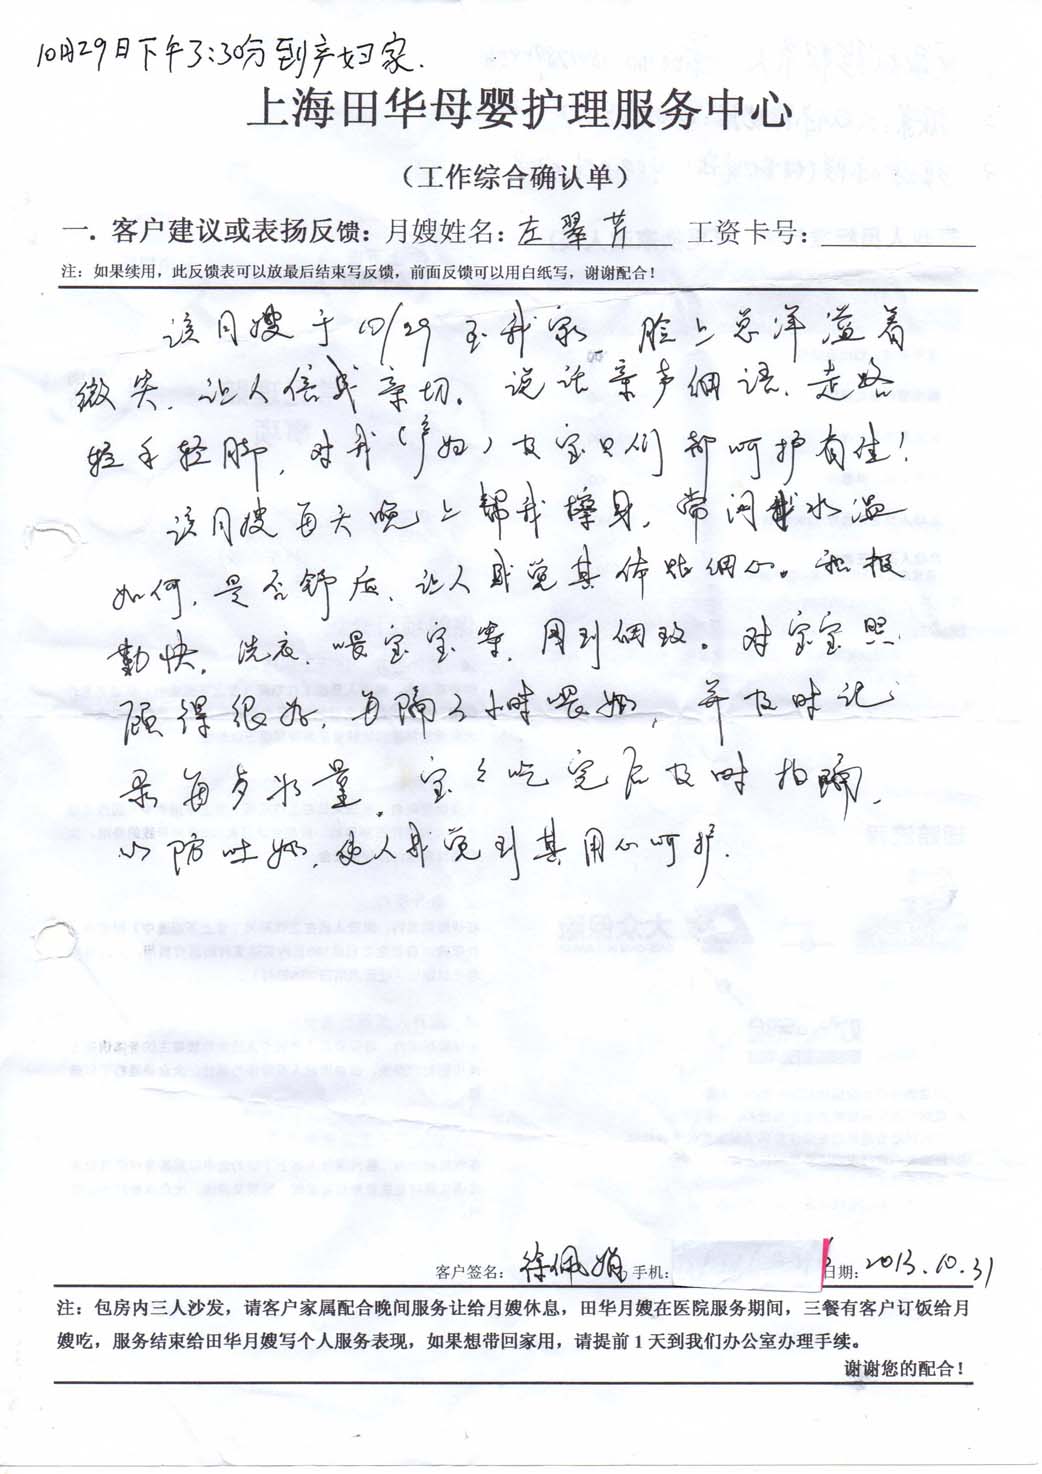 10月29日下午3:30分到产妇家.
上海田华母婴护理服务中心
（工作综合确认单）
一．客户建议或表扬反馈：月嫂姓名：左翠芹 工资卡号：
注：如果续用，此反馈表可以放最后结束写反馈，前面反馈可以用白纸写，谢谢配合！
该月嫂于10/29至我家 脸上总洋溢着
微笑，让人倍感亲切。说话亲声细语，走路
轻手轻脚，对我（产妇）及宝贝们都呵护有佳！
该月嫂每天晚上帮我擦身，常问我水温
如何，是否舒适，让人感觉其体贴细心。积极
勤快，洗衣、喂宝宝等，周到细致。对宝宝照
顾得很好，每隔3小时喂奶，并及时记
录每步水量。宝宝吃完后及时拍嗝，
以防吐奶，使人感觉到其用心呵护.
客户签名：徐佩娟 手机： 日期：2013.10.31
注：包房内三人沙发，请客户家属配合晚间服务让给月嫂休息，田华月嫂在医院服务期间，三餐有客户订饭给月
嫂吃，服务结束给田华月嫂写个人服务表现，如果想带回家用，请提前 1 天到我们办公室办理手续。
谢谢您的配合！